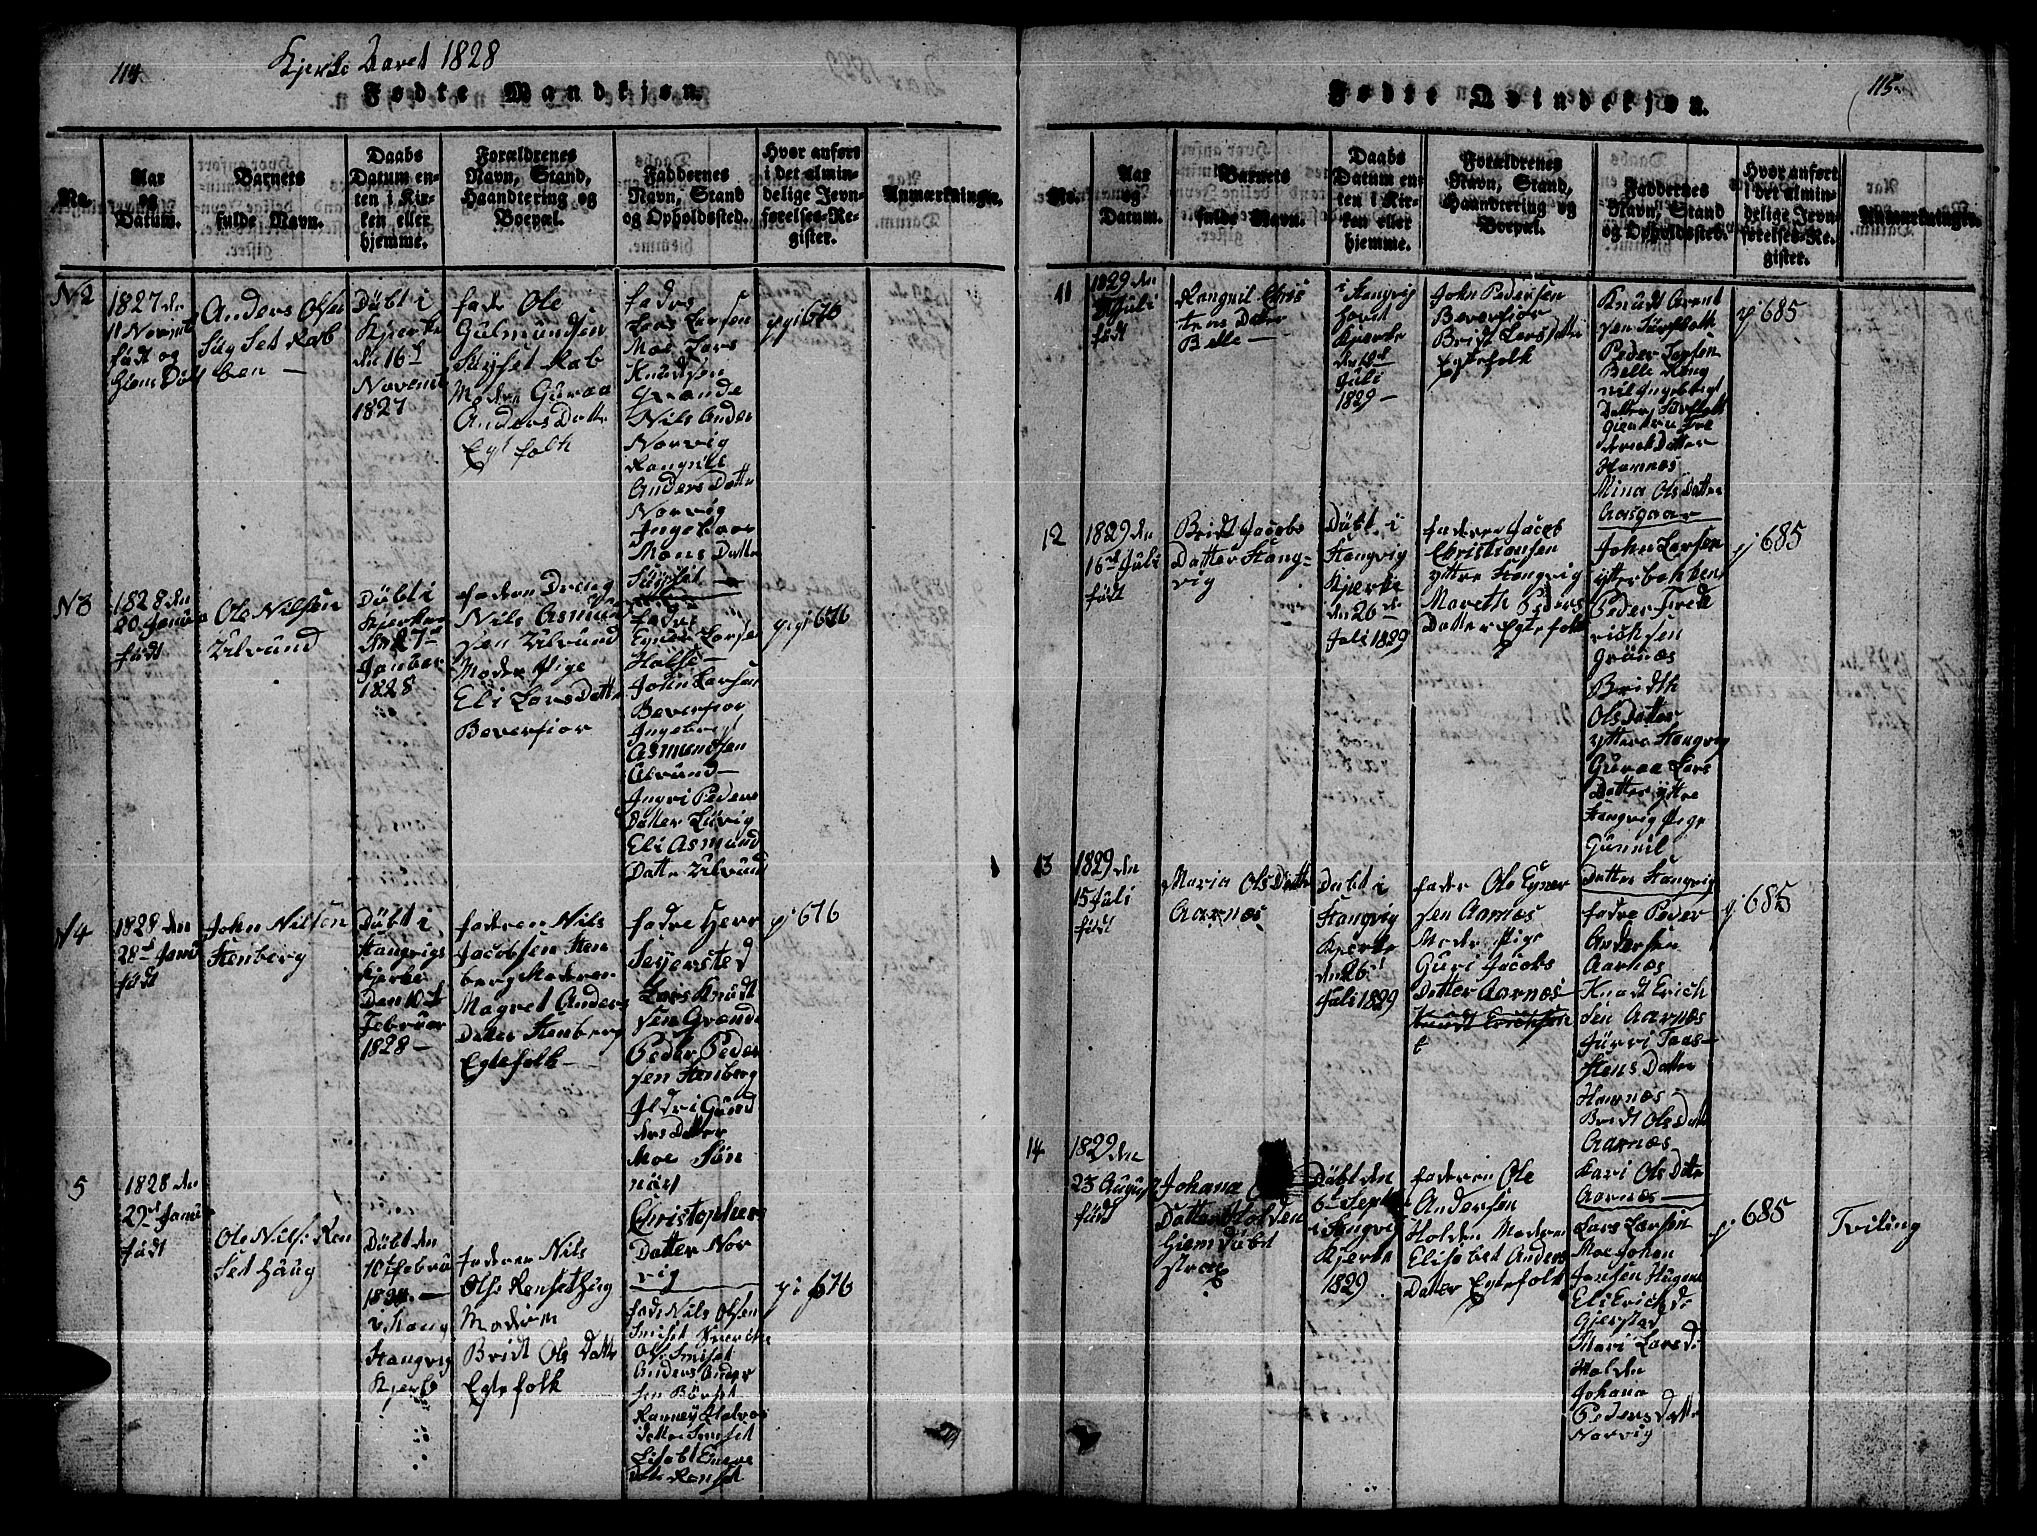 114.
Kjerke Aaret 1828
Fødte Mandkjøn.
No.
Aar
og
Datum.
Barnets
fulde Navn.
Daabs
Datum en-
ten i Kir-
ken eller
hjemme.
Forældrenes
Navn, Stand,
Haandtering og
Boepæl.
Faddernes
Navn, Stand
og Opholdssted.
Hvor anført
i det almin-
delige Jevn-
førelses-Re-
gister.
Anmærkninger.
N 2
1827 de
11 Novemb
født og
hiem Døbt
Anders Olsen
Døbt i
Kjerke
den 16
Novemb
1827
fader Ole
Gulmundsen
Moder Guroa
Anders Datte
Egtefolk
fadre
Lars Larsen
Moe Lars
Knudsen
Grande
Nils Ander
Norvig
Rangnil
Anders Datte
Norvig
Ingeboar
Mons Datter
676
N 3
1828 den
20 Janua
født
Ole Nilsen
Ulvund
Døbt i
Kjerke
den 27
Januar
1828
faderen Dreng
Nils Asmund
sen Ulvund
Moder Pige
Eli Lars Datte
Beverfior
fadre
Eyner Larsen
Halse
John Larsen
Beverfior
Ingebregt
Asmundsen
Ulvund
Ingri Peders
Datter Løvig
Eli Asmund
Datte Ulvund
676
N 4
1828 den
28 Janu
født
John Nilsen
Stenberg
Døbt i
Stangvigs
Kjerke
Den 10
Februar
1828
faderen Nils
Jacobsen Sten
berg Moderen
Magret Anders
Datter Stenberg
Egtefolk
fadre Herr
Sejersted
Lars Knudt
sen Grande
Peder Peder
sen Stenberg
Ildri Gund
ers Datter
Moe
Christophers
Datter Nor
vig
676
5
1828 den
29 Janu
født
Ole Nils: Ren
Set Haug
Døbt den
10 febru
i Stangvig
Kjerke
faderen Nils
Olse Renset Haug
Moderen
Bridt Ols Datte
Egtefolk
fadr Nils Olsen
676
115.
Fødte Qvindekjøn.
No.
Aar
og
Datum.
Barnets
fulde Navn.
Daabs
Datum en-
ten i Kir-
ken eller
hjemme.
Forældrenes
Navn, Stand,
Haandtering og
Boepæl.
Faddernes
Navn, Stand
og Opholdssted.
Hvor anført
i det almin-
delige Jevn-
førelses-Re-
gister.
Anmærkninger.
11
1829 den
Juli
født
Rangnil Chris
tens Datter
Belle
i Stangvig
hoved
Kjerke
Juli
1829
John Pedersen
Beverfior
Bridt Lars Datte
Egtefolk
Knudt Arent
sen
Peder Larsen
Belle Rang
nil Ingebregt
Datter
Hamnes
Mina Ols Datter
Aasgaar
685
12
1829 den
16 Juli
født
Bridt Jacobs
Datter Stang-
vig
Døbt i
Stangvig
Kjerke
den 26 de
Juli 1829
faderen Jacob
Christiansen
ytre Stangvig
Mareth Peders
Datter Egtefolk
John Larsen
ytterbakken
Peder Fred
richsen
Grønnæs
Bridth
Ols Datter
yttere Stangvig
Guroa Lars
Datter yttre
Stangvig Pige
Gunnil
Datter Stangvig
685
13
1829 den
15 Juli
født
Maria Ols Datte
Aarnæs
Døbt i
Stangvig
Kjerke
den 26
Juli 1829
fader Ole Eyner
sen Aarnæs
Moder Pige
Guri Jacobs
Datter Aarnæs
Knudt Erichsen
fadre Peder
Andersen
Aarnæs
Knudt Erich
sen Aarnæs
Hamnæs
Bridt Ols Datte
Aarnæs
Kari Ols Datte
Aarnæs
685
14
1829 den
23 August
født
Johana
Datter Holden
hiem døbt
strax
Døbt den
6 Sept
i Stangvig
Kjerke
1829
faderen Ole
Andersen
Holden Moderen
Elisabet Anders
Datter Egtefolk
Lars Larsen
Moe Johan
Jansen
Eli Erich D:
Gjerstad
Mari Lars D:
Holden
Johana
Peders Datte
Norvig
685
Tviling